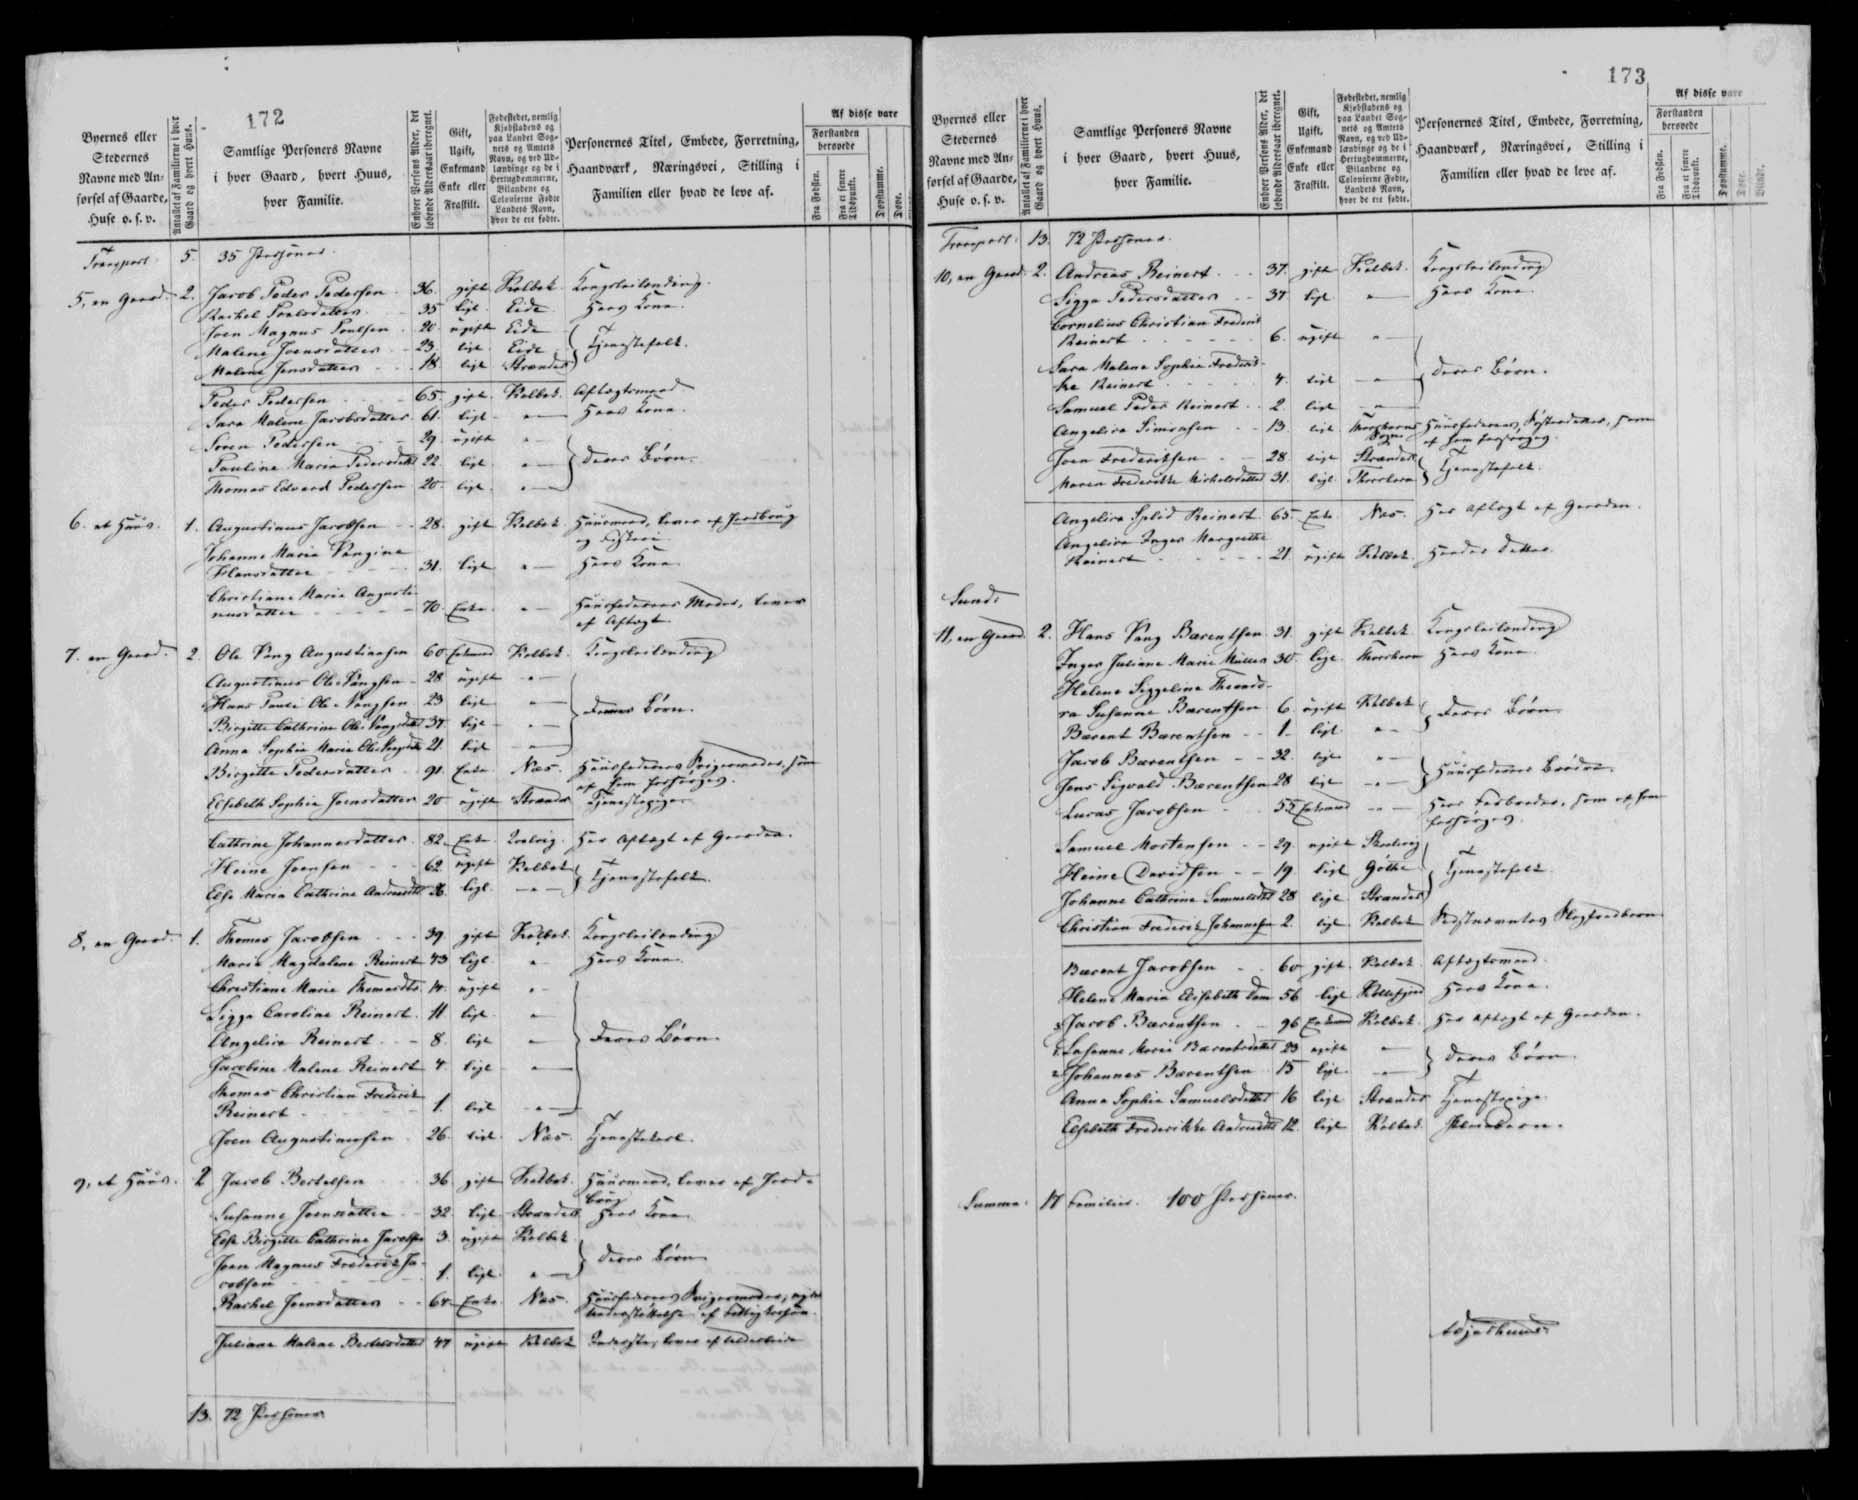 172
Byernes eller Stedernes Navne med Anførsel af Gaarde, Huse o. s. v.
Antallet af Familierne i hver Gaard og hvert Huus.
Samtlige Personers Navne i hver Gaard, hvert Huus, hver Familie.
Enhver Persons Alder, det løbende Aldersaar iberegnet.
Gift, Ugift, Enkemand Enke eller Frastilt.
Fødestedet, nemlig Kjøbstadens og paa Landet Sognets og Amtets Navn, og ved Udlændinge og de i Hertugdømmerne, Bilandene og Colonierne Fødte Landets Navn, hvor de ere fødte.
Personernes Titel, Embede, Forretning, Haandværk, Næringsvei, Stilling i Familien eller hvad de leve af.
Af disse vare
Forstanden berøvede
Fra Fødslen.
Fra et senere Tidspunkt.
Døvstumme.
Døve.
Transport. 5. 35 Personer.
5, en Gaard. 2. Jacob Peder Pedersen 36. gift Kolbek Kongsleilending.
Rachel Poulsdatter 35 ligl. Eide Hans Kone.
Joen Magnus Poulsen 20 ugift Eide
Malene Joensdatter 23. ligl. Eide } Tjenestefolk.
Malene Jensdatter 18 ligl Strænder
Peder Pedersen 65 gift. Kolbek. Aftægtsmand
Sara Malene Jacobsdatter 61. ligl " Hans Kone.
Søren Pedersen 29 ugift "
Pauline Maria Pedersdatt 22. ligl. " } Deres Børn.
Thomas Edvard Pedersen 20. ligl. "
6. et Huus. 1. Augustinus Jacobsen 28. gift Kolbek. Huusmand, lever af Jordbrug
og Fiskeri
Johanne Maria
Hansdatter 31. ligl " Hans Kone
Christiane Marie Augusti-
nusdatter 70. Enke. " Huusfaderens Moder, lever
af Aftægt.
7. en Gaard. 2. Ole Vang Augustinsen 60 Enkemd Kolbek. Kongsleilending
Augustinus Ole Vangsen 28 ugift "
Hans Ole Vangsen 23 ligl "
Birgitte Cathrine Ole Vangsdatt 37 ligl " } Børn.
Anna Sophie Marie Ole Vangsdatt 21. ligl "
Birgitte Pedersdatter 91. Enke. Næs. Huusfaderens Svigermoder, som
af ham forsørges.
Elsebeth Sophie Joensdatter 20 ugift Strænder Tjenestepige
Cathrine Johannesdatter. 82. Enke. Har Aftægt af Gaarden.
Heine Joensen 62. ugift Kolbek
Else Maria Cathrine 26. ligl. " } Tjenestefolk.
8, en Gaard. 1. Thomas Jacobsen 39 gift Kolbek. Kongsleilending
Maria Magdalene Reinert 43 ligl. " Hans Kone.
Christiane Marie Thomasdtr. 14. ugift "
Sigga Caroline Reinert. 11 ligl. "
Angelica Reinert 8. ligl " } Deres Børn.
Jacobine Malene Reinert 4. ligl "
Thomas Christian Frederik
Reinert 1. ligl "
Joen Augustinusen 26. ligl. Næs. Tjenestekarl.
9, et Huus. 2 Jacob Bertelsen 36. gift Kolbek. Huusmand, lever af Jord-
brug
Susanne Joensdatter 32. ligl Strænder Hans Kone
Else Birgitte Cathrine Jacobsen 3. ugift Kolbek
Joen Magnus Frederik Ja-
cobsen 1. ligl. " } Deres Børn
Rachel Joensdatter 64. Enke. Næs. Huusfaderens Svigermoder,
Understøttelse af
Juliane Malene Bertelsdatter 47 ugift Kolbek Inderste, lever af
13. 72 Personer
173
Byernes eller Stedernes Navne med Anførsel af Gaarde, Huse o. s. v.
Antallet af Familierne i hver Gaard og hvert Huus.
Samtlige Personers Navne i hver Gaard, hvert Huus, hver Familie.
Enhver Persons Alder, det løbende Aldersaar iberegnet.
Gift, Ugift, Enkemand Enke eller Frastilt.
Fødestedet, nemlig Kjøbstadens og paa Landet Sognets og Amtets Navn, og ved Udlændinge og de i Hertugdømmerne, Bilandene og Colonierne Fødte Landets Navn, hvor de ere fødte.
Personernes Titel, Embede, Forretning, Haandværk, Næringsvei, Stilling i Familien eller hvad de leve af.
Af disse vare
Forstanden berøvede
Fra Fødslen.
Fra et senere Tidspunkt.
Døvstumme.
Døve.
Blinde.
Transport: 13. 72 Personer.
10, en Gaard. 2. Andreas Reinert 37. gift Kolbek. Kongsleilending
Sigga Pedersdatter 37 ligl " Hans Kone
Cornelius Christian Frederik
Reinert 6. ugift "
Sara Malene Sophie Frederik-
ke Reinert 4. ligl " } Deres Børn.
Samuel Peder Reinert 2. ligl "
Angelica Simonsen 13. ligl Thorshavns
Sogn Huusfaderens Søsterdatter, som
af ham forsørges.
Joen Frederiksen 28. ligl Strænder
Maren Frederikke Michelsdatter 31. ligl. Thorshavn } Tjenestefolk.
Angelica Splid Reinert. 65. Enke. Næs. Har Aftægt af Gaarden.
Angelica Inger Margrethe
Reinert 21. ugift Kolbek. Hendes Datter.
Sund:
11, en Gaard. 2. Hans Vang Bærentsen. 31. gift Kolbek. Kongsleilending
Inger Juliane Marie Müller 30. ligl. Thorshavn Hans Kone
Helene Siggeline Theodo-
ra Susanne Bærentsen 6. ugift Kolbek
Bærent Bærentsen 1. ligl. " } Deres Børn
Jacob Bærentsen 32. ligl "
Jens Sigvald Bærentsen 28 ligl " } Huusfaderens Brødre.
Lucas Jacobsen 55 Enkemd " Hans Farbroder, som af ham
forsørges.
Samuel Mortensen 29. ugift
Heine Davidsen 19. ligl Gøthe } Tjenestefolk
Johanne Cathrine Samuelsdtr 28 ligl Strænder
Christian Frederik Johannesen 2. ligl. Kolbek Sidstnævntes Slegfredbarn
Bærent Jacobsen 60 gift. Kolbek. Aftægtsmand.
Helene Maria Elisabeth Dam 56 ligl Kollefjord Hans Kone.
3 Jacob Bærentsen 96 Enkemd Kolbek. Har Aftægt af Gaarden.
1. Susanne Marie Bærentsdatter 23 ugift "
2 Johannes Bærentsen 15 ligl. " } Deres Børn
Anna Sophie Samuelsdatter 16 ligl Strænder Tjenestepige.
Elsebeth Frederikke 12. ligl Kolbek. Pleiebarn.
Summa: 17 Familier. 100 Personer.